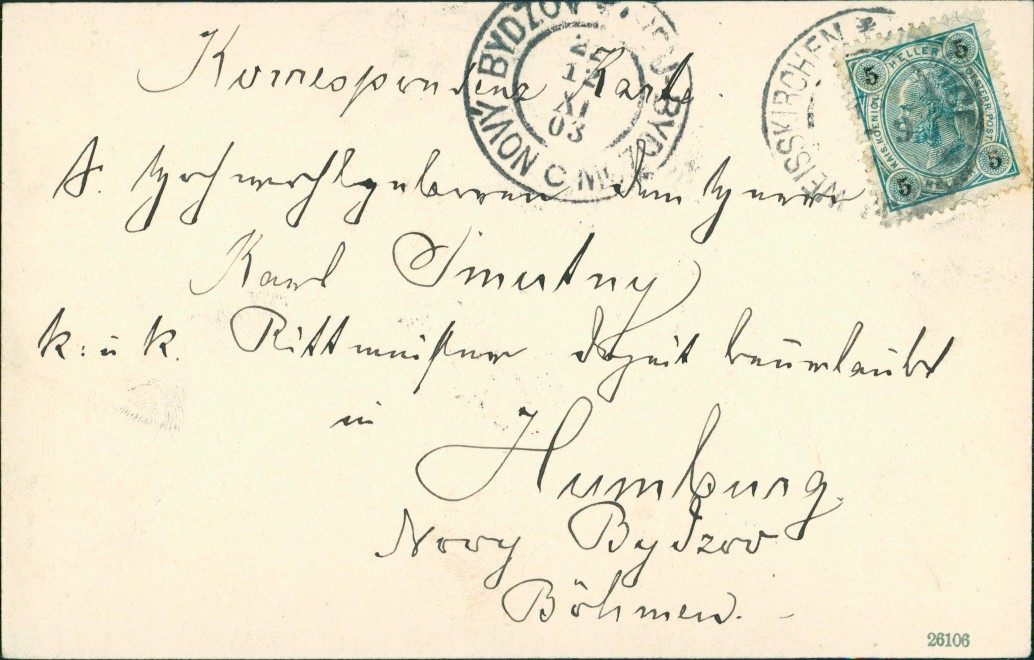 Korrespondenz Karte.
Sr. Hochwohlgeboren dem Herrn
Karl Smutny
k: u k. Rittmeister dzeit beurlaubt
in
Humburg.
Novy Bydzov
Böhmen.
NOVÝ BYDŽOV
2
12
XI
03
WEISSKIRCHEN
5 HELLER 5
5 HELLER 5
26106